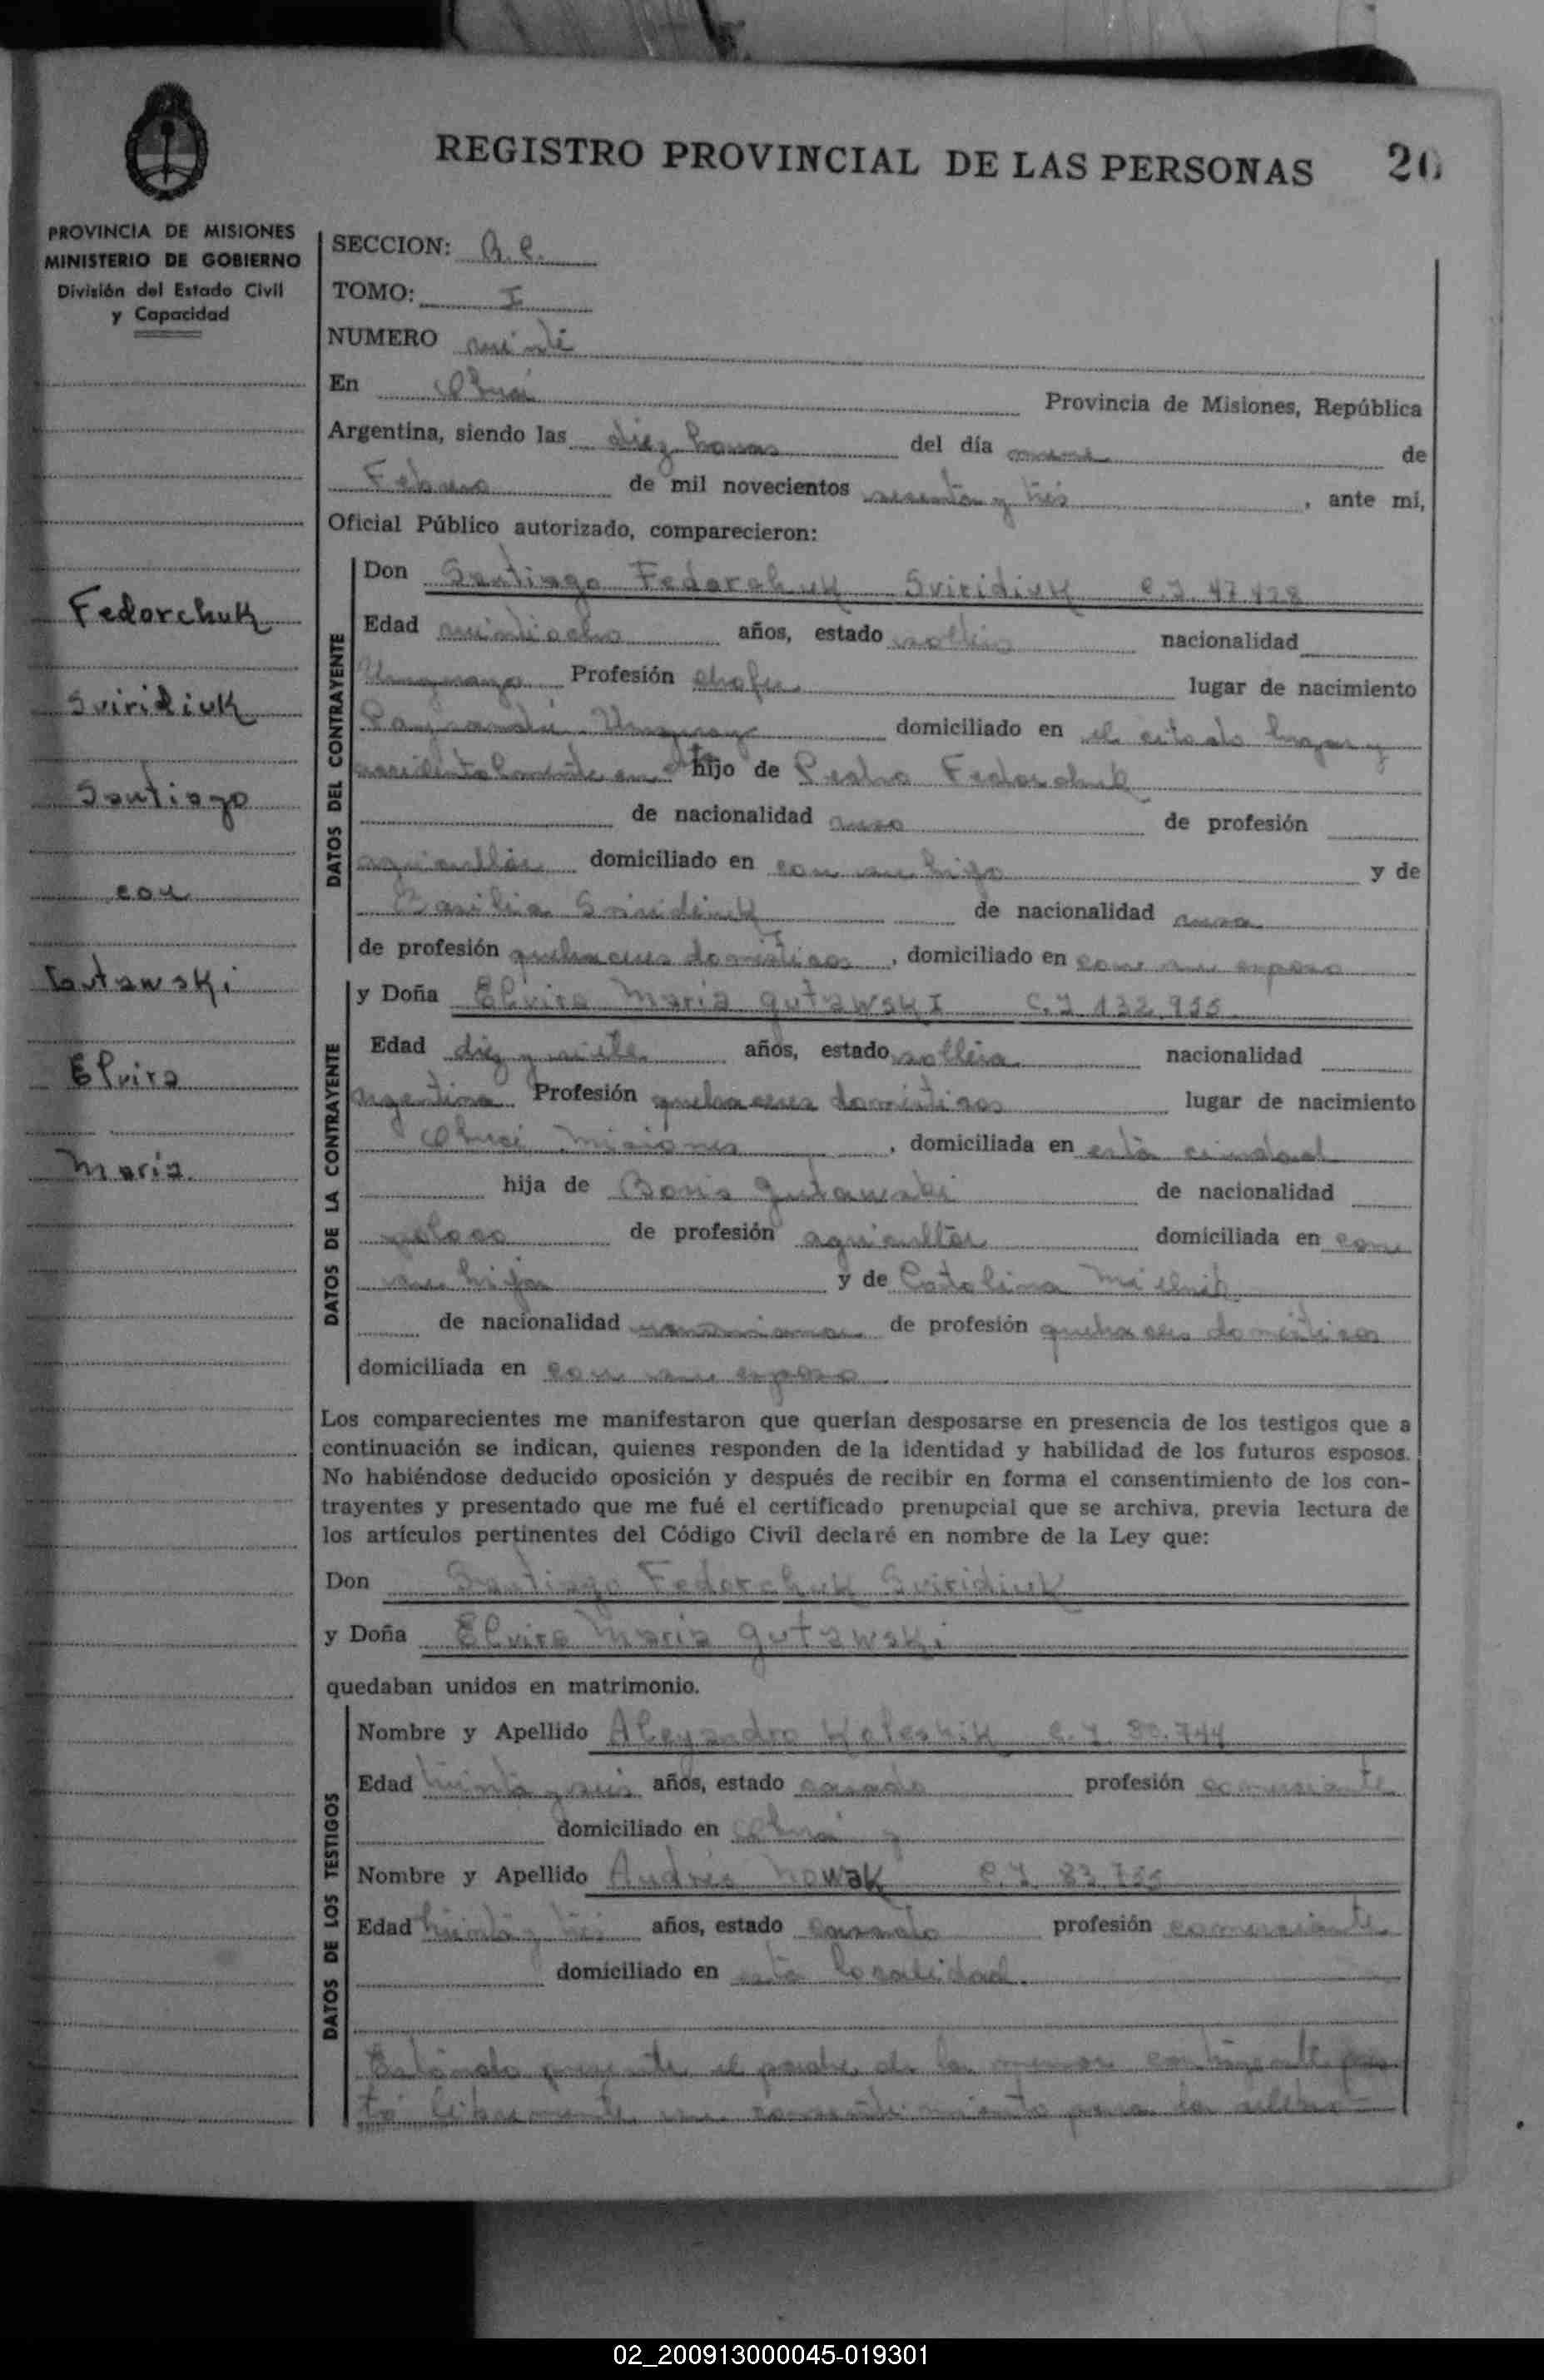 REGISTRO PROVINCIAL DE LAS PERSONAS 20
PROVINCIA DE MISIONES
MINISTERIO DE GOBIERNO
División del Estado Civil
y Capacidad
Fedorchuk
Sviridiuk
Santiago
con
Gutawski
Elvira
Maria
SECCION:
TOMO: I
NUMERO veinte
En Oberá Provincia de Misiones, República
Argentina, siendo las diez horas del día nueve de
Febrero de mil novecientos sesenta y tres, ante mi,
Oficial Público autorizado, comparecieron:
DATOS DEL CONTRAYENTE
Don Santiago Fedorchuk Sviridiuk C.I. 47.428
Edad veintiocho años, estado soltero nacionalidad
Uruguayo Profesión chofer lugar de nacimiento
Paysandú Uruguay domiciliado en el citado lugar y
accidentalmente en hijo de Pedro Fedorchuk
de nacionalidad ruso de profesión
agricultor domiciliado en con su hijo y de
Basilia Sviridiuk de nacionalidad rusa
de profesión quehaceres domésticos, domiciliado en con su esposo
DATOS DE LA CONTRAYENTE
y Doña Elvira Maria GutawskI C.I 132.955
Edad diez y siete años, estado soltera nacionalidad
argentina Profesión quehaceres domésticos lugar de nacimiento
Oberá Misiones, domiciliada en esta ciudad
hija de Boris Gutawski de nacionalidad
polaco de profesión agricultor domiciliada en con
su hija y de Catalina Mielnik
de nacionalidad de profesión quehaceres domésticos
domiciliada en con su esposo
Los comparecientes me manifestaron que querían desposarse en presencia de los testigos que a
continuación se indican, quienes responden de la identidad y habilidad de los futuros esposos.
No habiéndose deducido oposición y después de recibir en forma el consentimiento de los con-
trayentes y presentado que me fué el certificado prenupcial que se archiva, previa lectura de
los artículos pertinentes del Código Civil declaré en nombre de la Ley que:
Don Santiago Fedorchuk Sviridiuk
y Doña Elvira Maria Gutawski
quedaban unidos en matrimonio.
DATOS DE LOS TESTIGOS
Nombre y Apellido Aleyandro Koleshik C.I. 80.744
Edad treinta y seis años, estado casado profesión comerciante
domiciliado en Oberá y
Nombre y Apellido Andrés Nowak C.I. 83.735
Edad treinta y tres años, estado casado profesión comerciante
domiciliado en esta localidad.
Estando presente el padre de la menor contrayente pres
tó libremente su consentimiento para la celebra
02_200913000045-019301